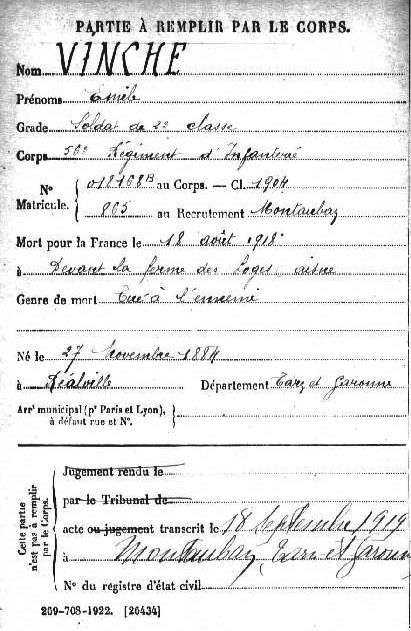 PARTIE À REMPLIR PAR LE CORPS.
Nom VINCHE
Prénoms Emile
Grade Soldat de 2e classe
Corps 56e Régiment d'Infanterie
N° Matricule. { 018168B au Corps. — Cl. 1904
865 au Recrutement Montauban
Mort pour la France le 18 août 1918
à Devant la ferme des Loges, aisne
Genre de mort Tué à l'ennemi
Né le 27 Novembre 1884
à Réalville Département Tarn et Garonne
Arrt municipal (pr Paris et Lyon), à défaut rue et N°. {
Cette partie n'est pas à remplir par le Corps.
Jugement rendu le
par le Tribunal de
acte ou jugement transcrit le 18 Septembre 1919
à Montauban, Tarn et Garonne
N° du registre d'état civil
269-708-1922. [26434]